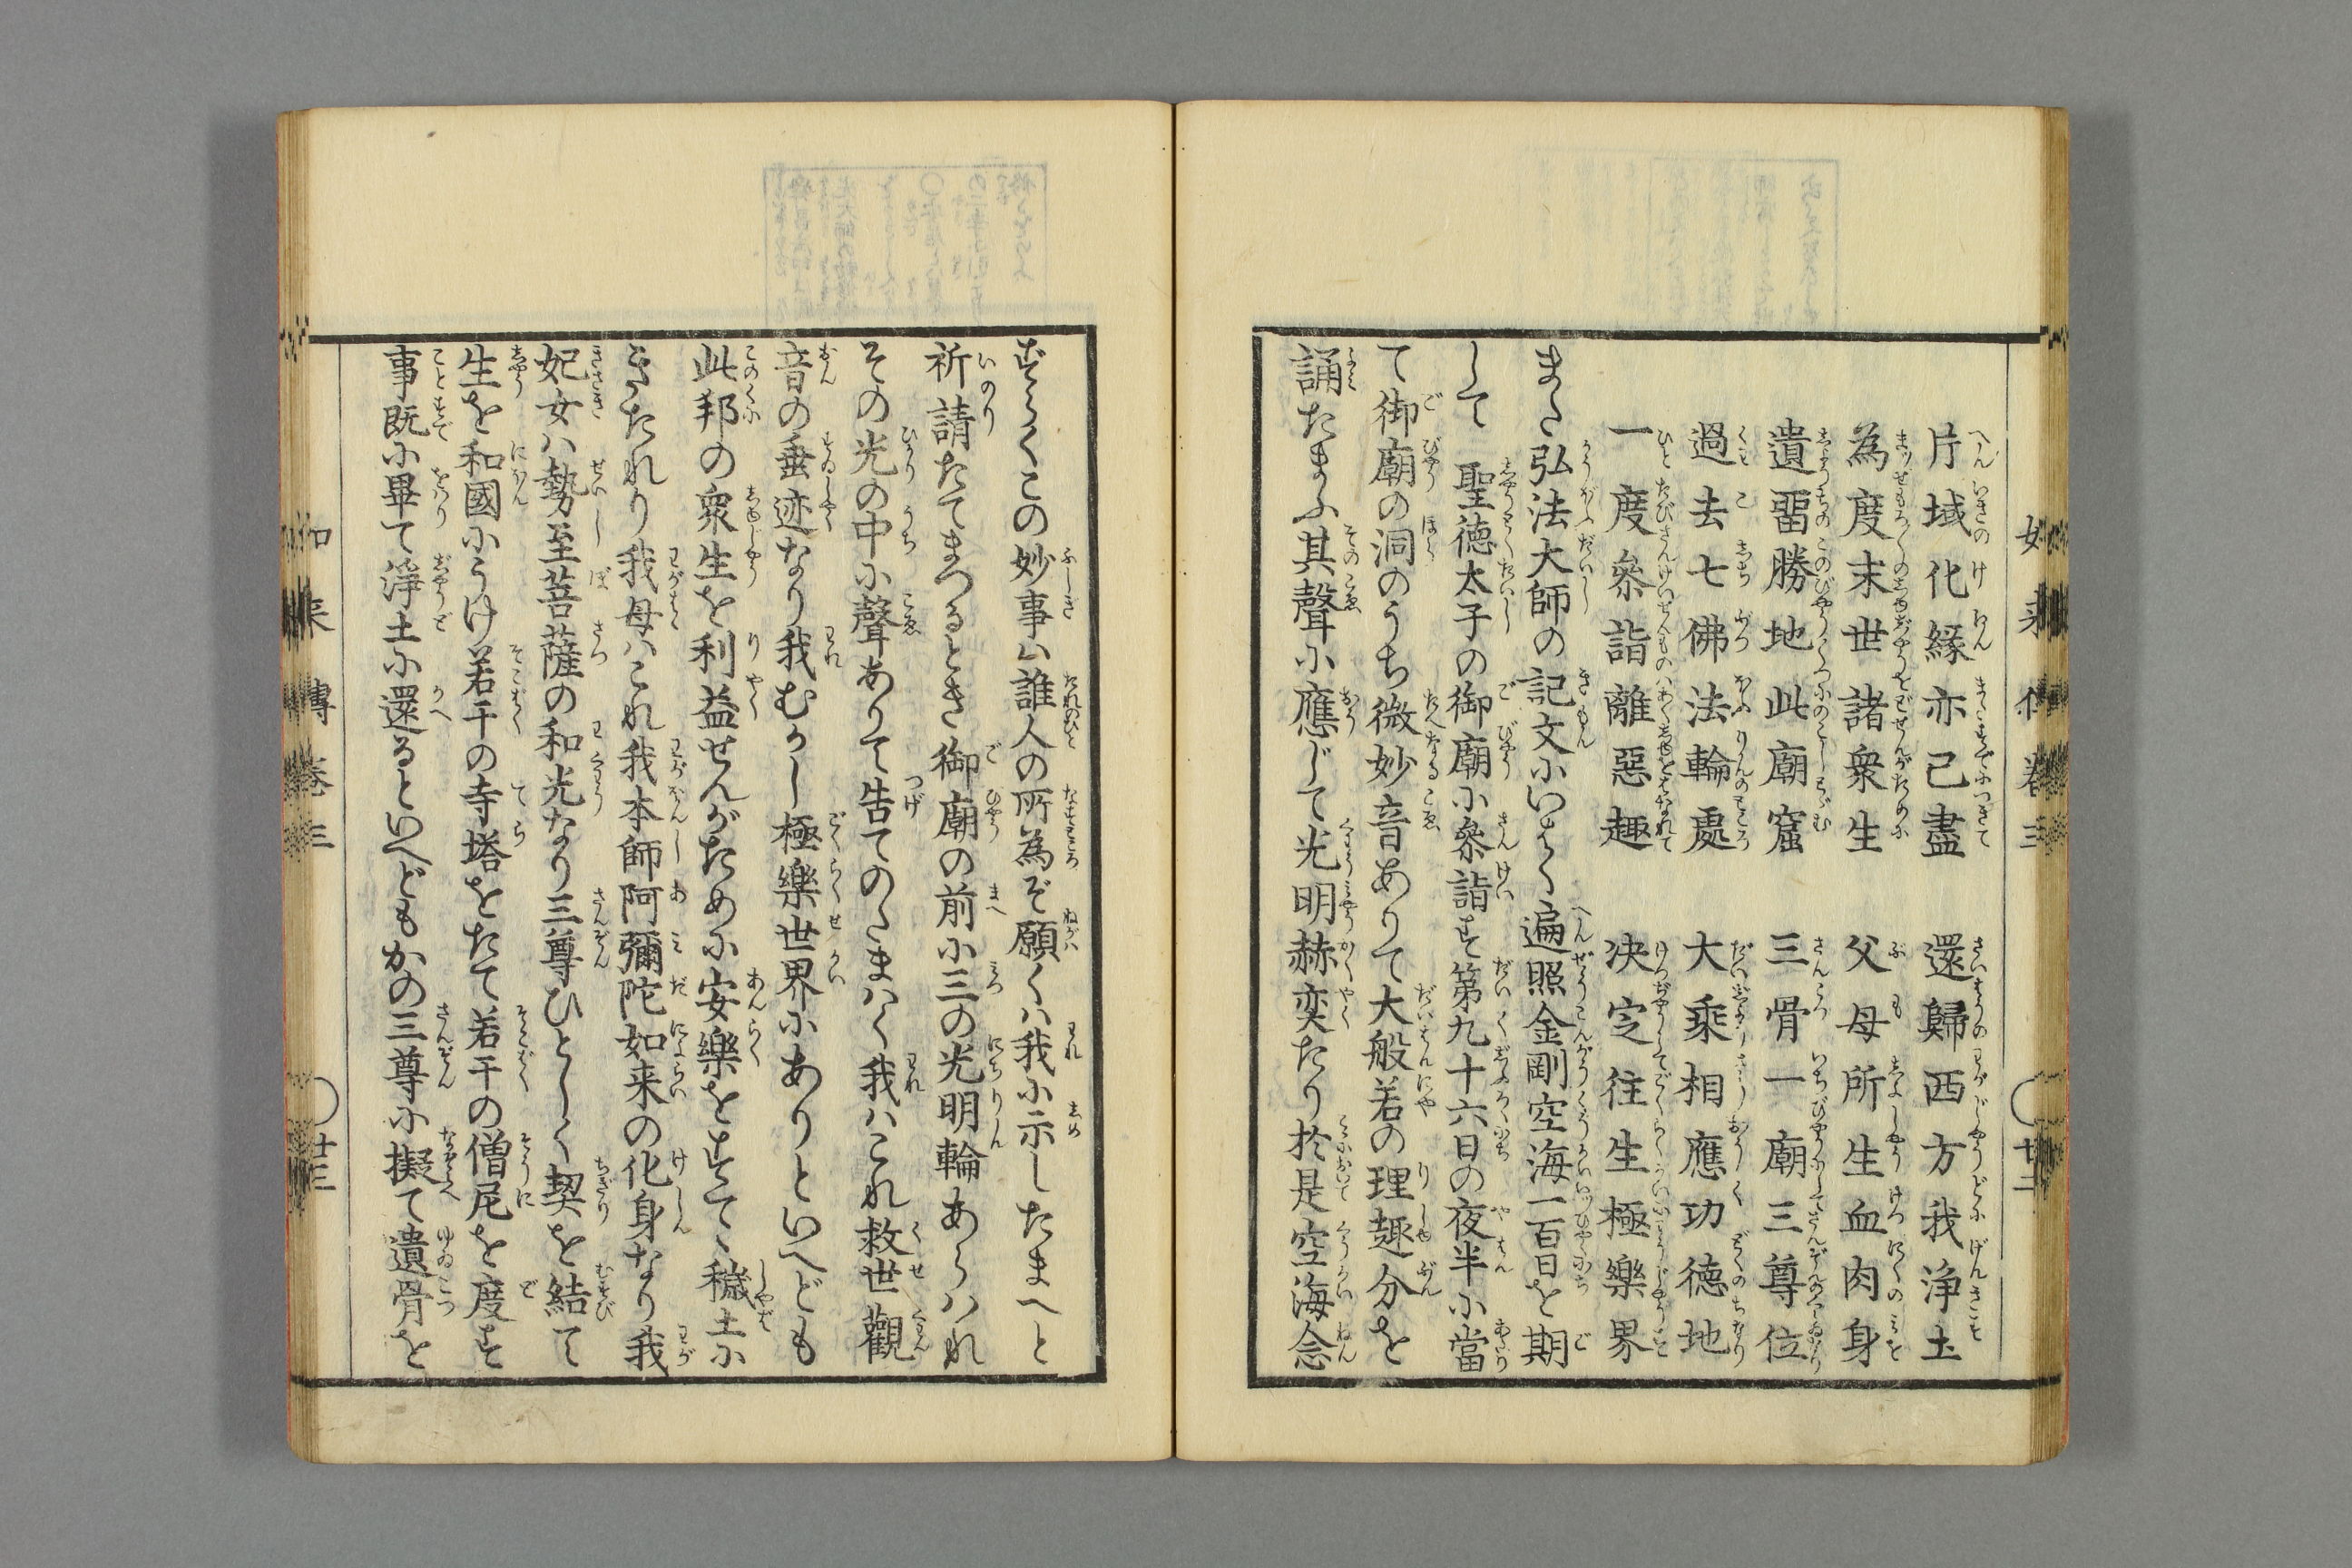 片域化縁亦已盡　還歸西方我浄土
為度末世諸衆生　父母所生血肉身
遺畱勝地此廟窟　三骨一廟三尊位
過去七佛法輪處　大乘相應功德地
一度參詣離惡趣　决定往生極樂界
また弘法大師の記文にいはく遍照金剛空海一百日を期
して　聖徳太子の御廟に參詣す第九十六日の夜半に當
て御廟の洞のうち微妙音ありて大般若の理趣分を
誦たまふ其聲に應じて光明赫奕たり於是空海念
すらくこの妙事は誰人の所為ぞ願くは我に示したまへと
祈請たてまつるとき御廟の前に三の光明輪あらはれ
その光の中に聲ありて告てのたまはく我はこれ救世觀
音の垂迹なり我むかし極樂世界にありといへども
此邦の衆生を利益せんがために安樂をすてゝ穢土に
きたれり我母はこれ我本師阿彌陀如来の化身なり我
妃女は勢至菩薩の和光なり三尊ひとしく契を結て
生を和國にうけ若干の寺塔をたて若干の僧尼を度す
事既に畢て浄土に還るといへどもかの三尊に擬て遺骨を